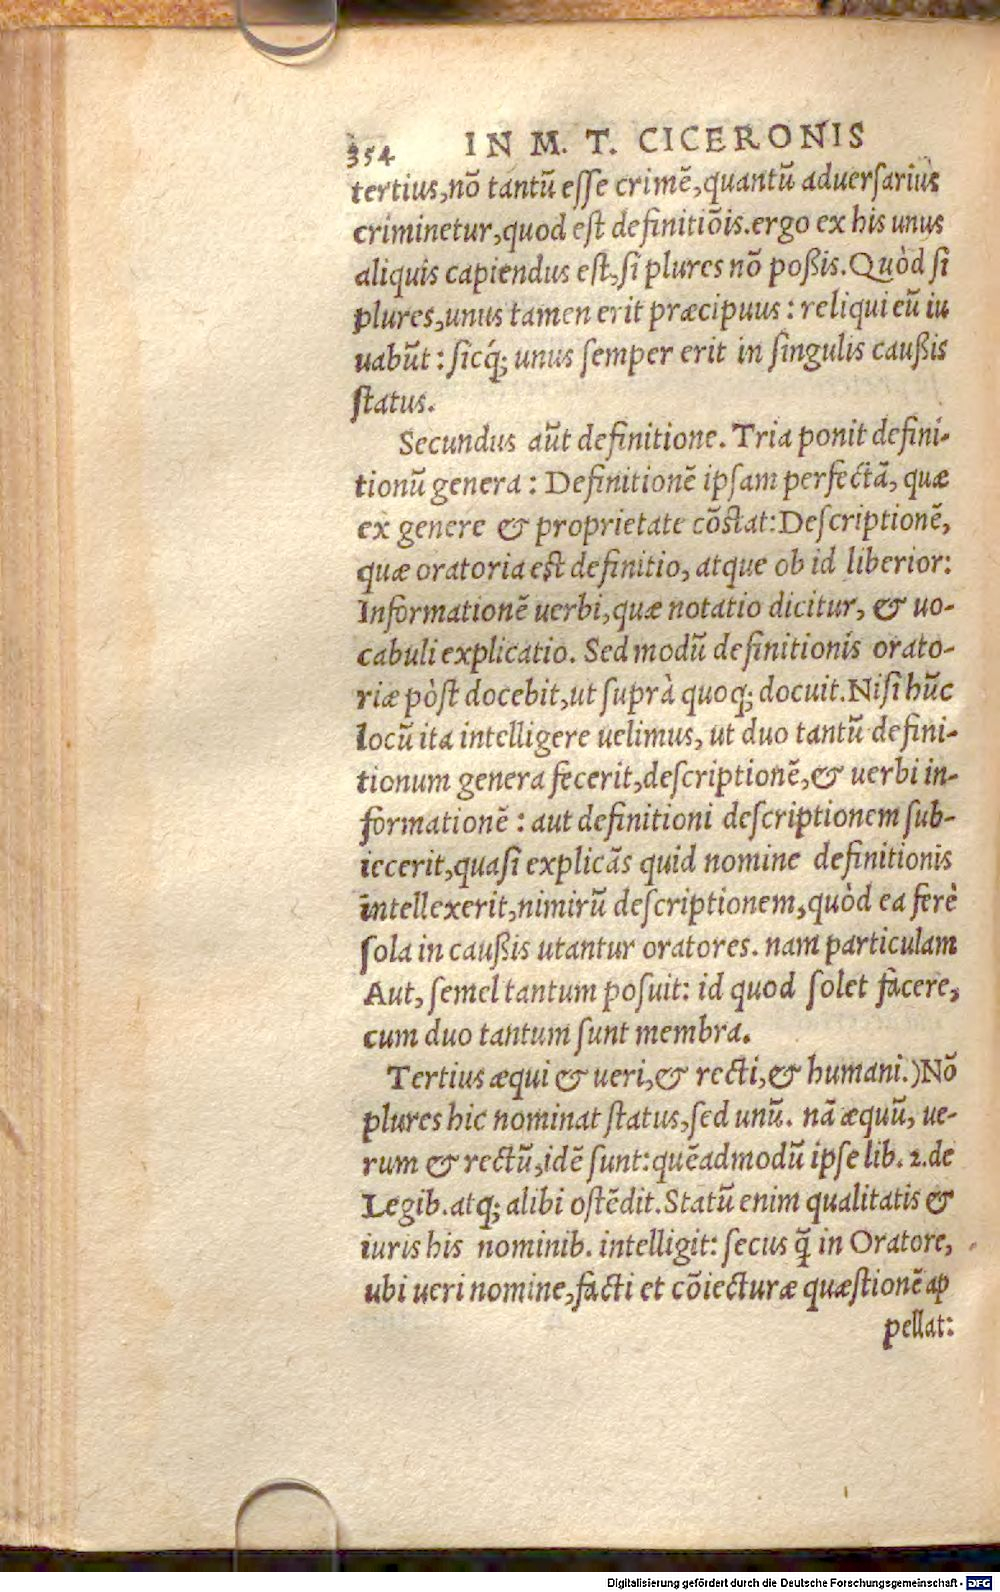 354 IN M. T. CICERONIS
tertius,nō tantū esse crimē,quantū aduersarius
criminetur,quod est definitiōis.ergo ex his unus
aliquis capiendus est,si plures nō poßis.Quòd si
plures,unus tamen erit præcipuus: reliqui eū iu
uabūt: sicq́; unus semper erit in singulis caußis
status.
Secundus aūt definitione. Tria ponit defini-
tionū genera: Definitionē ipsam perfectā, quæ
ex genere & proprietate cōstat:Descriptionē,
quæ oratoria est definitio, atque ob id liberior:
Informationē uerbi,quæ notatio dicitur, & uo-
cabuli explicatio. Sed modū definitionis orato-
riæ pòst docebit,ut suprà quoq; docuit.Nisi hūc
locū ita intelligere uelimus, ut duo tantū defini-
tionum genera fecerit,descriptionē,& uerbi in-
formationē: aut definitioni descriptionem sub-
iecerit,quasi explicās quid nomine definitionis
intellexerit,nimirū descriptionem,quòd ea ferè
sola in caußis utantur oratores. nam particulam
Aut, semel tantum posuit: id quod solet facere,
cum duo tantum sunt membra.
Tertius æqui & ueri,& recti,& humani.)Nō
plures hic nominat status,sed unū. nā æquū, ue-
rum & rectū,idē sunt:quēadmodū ipse lib. 2.de
Legib.atq; alibi ostēdit.Statū enim qualitatis &
iuris his nominib. intelligit: secus q̄ in Oratore,
ubi ueri nomine,facti et cōiecturæ quæstionē ap
pellat:
Digitalisierung gefördert durch die Deutsche Forschungsgemeinschaft - DFG